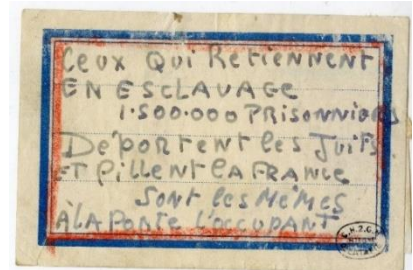 Ceux Qui Retiennent
EN ESCLAVAGE
1.500.000 PRISONNIERS
Déportent les Juifs
ET Pillent la FRANCE
Sont les Mêmes
À LA PORTE L'OCCUPANT